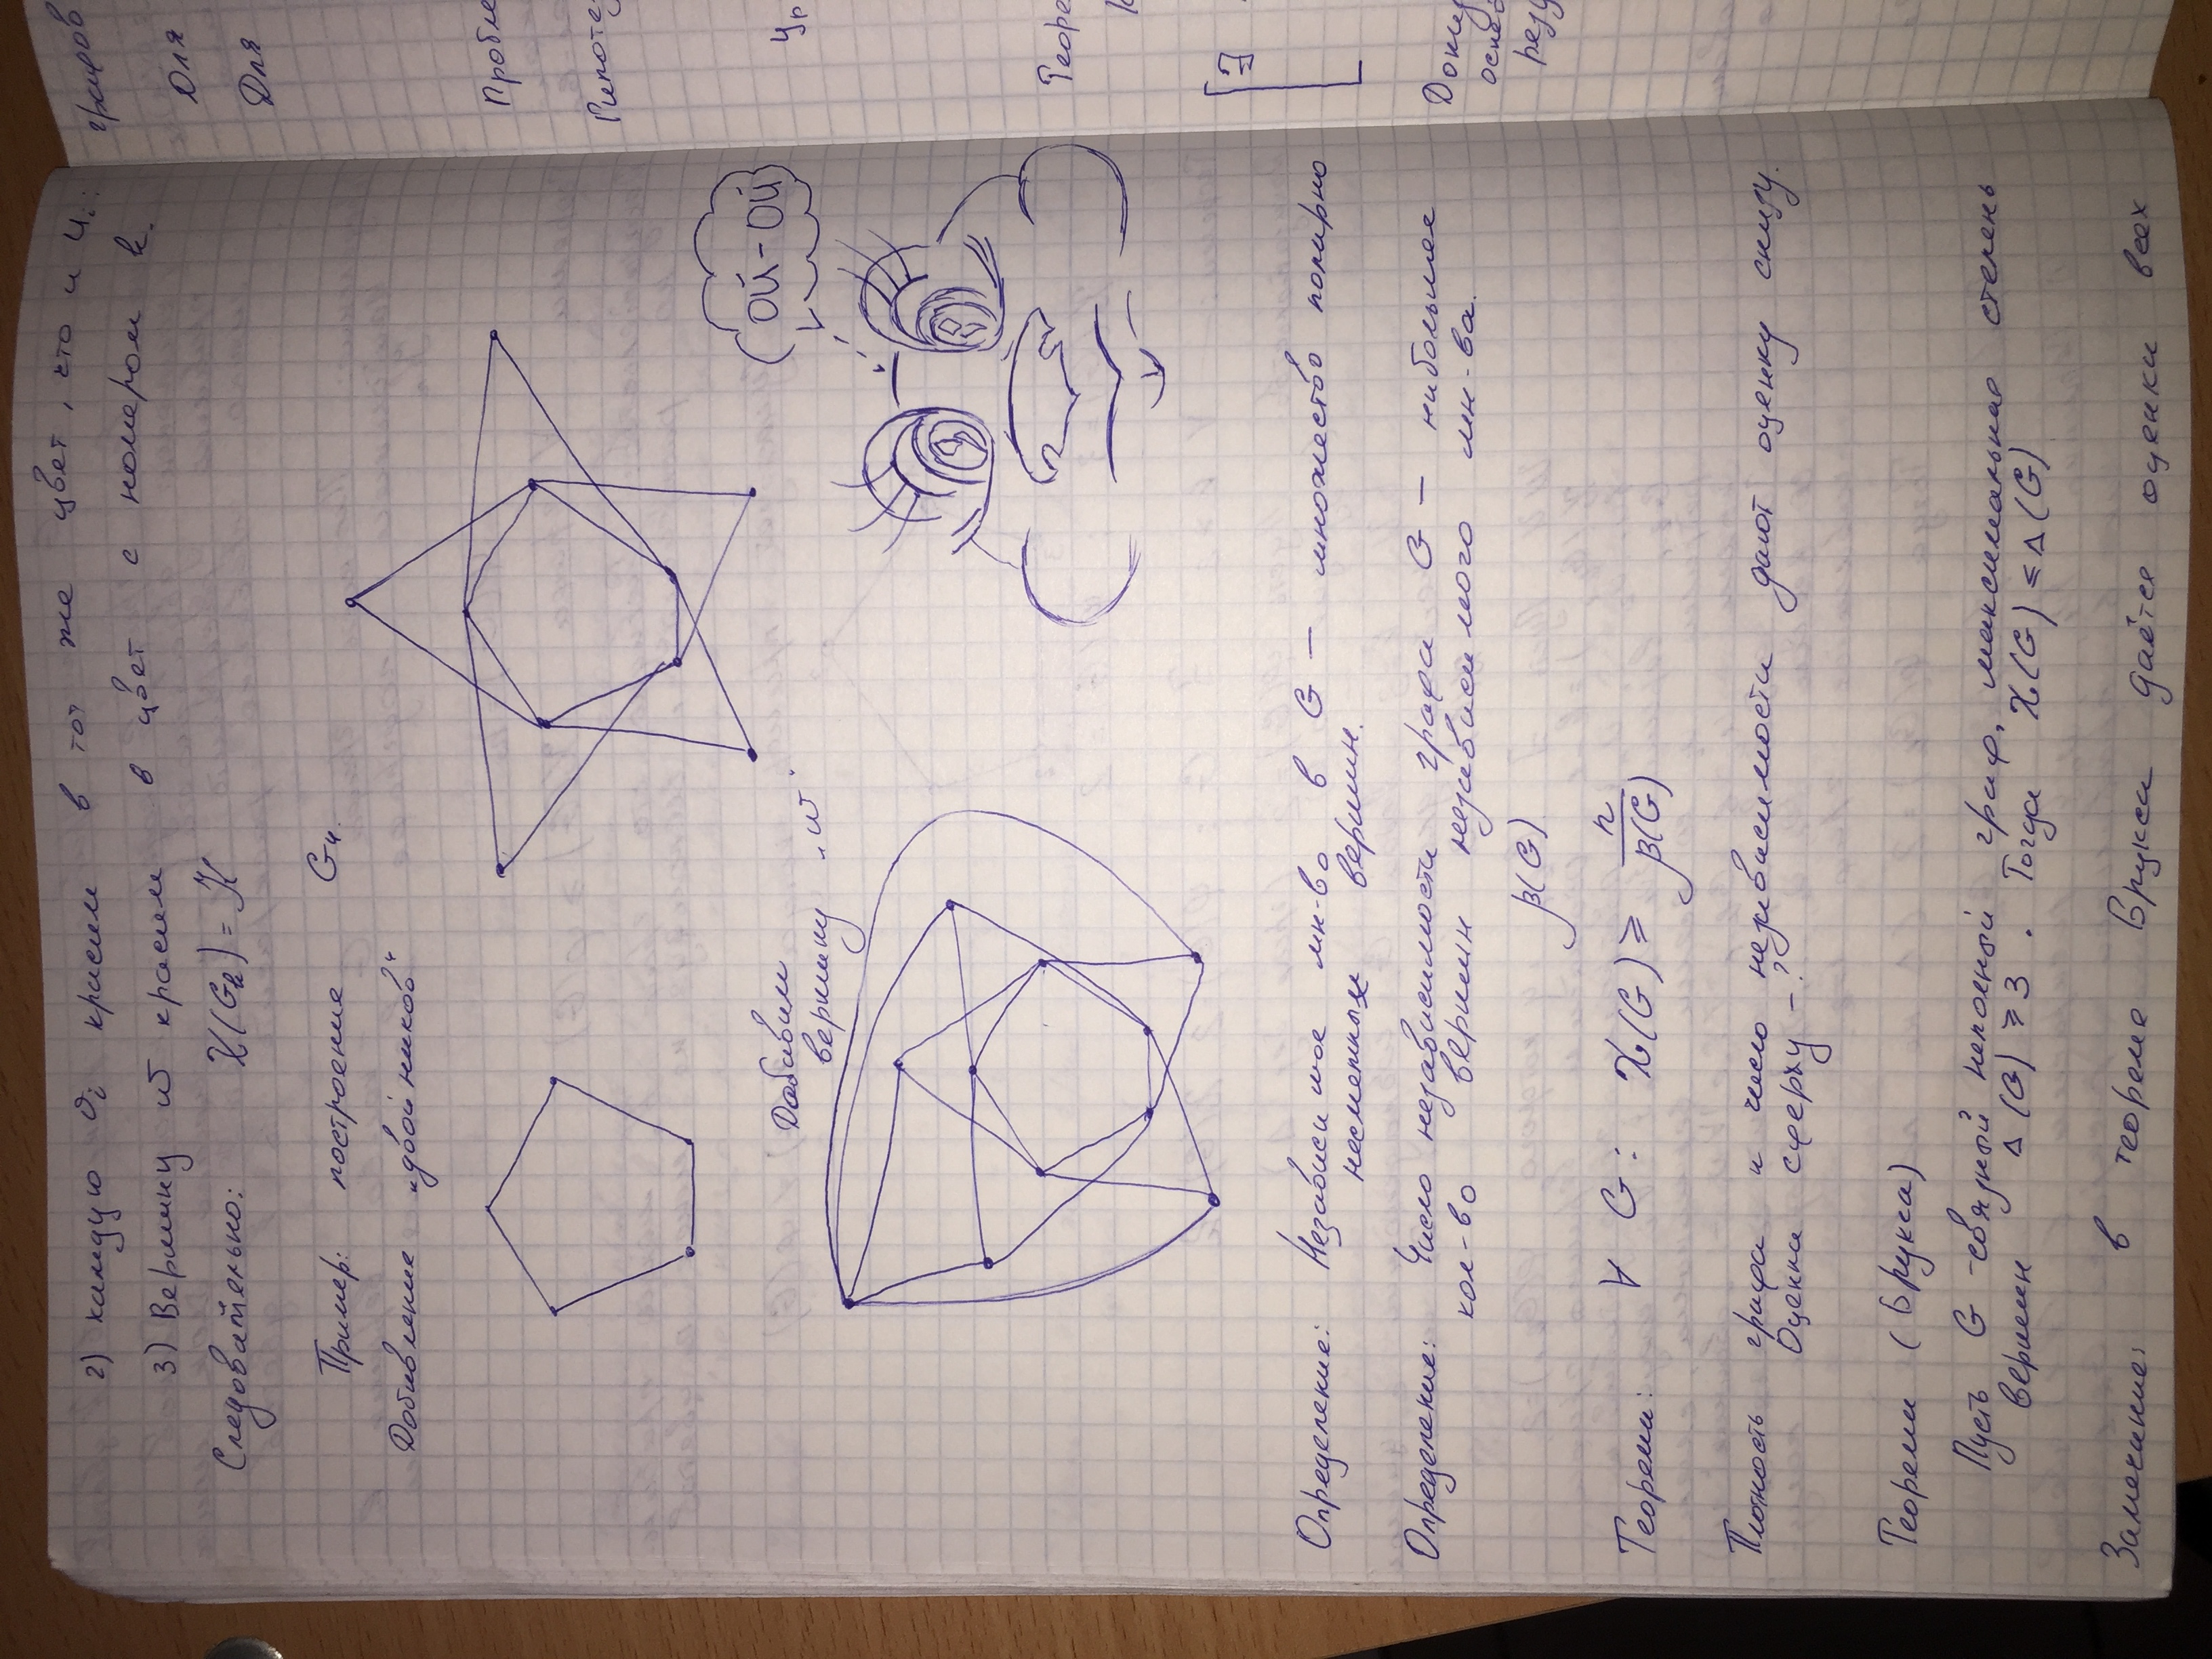 2) каждую v_i красим в тот же цвет, что и u_i.
3) Вершину w красим в цвет с номером k.
Следовательно: χ(G_k) = K
Пример: построение G_4.
Добавление „двойников“
Добавим
вершину „w“
ОЙ-ОЙ
Определение: Независимое мн-во в G — множество попарно
несмежных вершин.
Определение: Число независимости графа G — наибольшее
кол-во вершин независимого мн-ва.
β(G)
Теорема: ∀ G: χ(G) ≥ n / β(G)
Плотность графа и число независимости дают оценку снизу.
Оценка сферху - ?
Теорема (Брукса)
Пусть G - связный неполный граф, максимальная степень
вершин Δ(G) ≥ 3. Тогда χ(G) ≤ Δ(G)
Замечание: в теореме Брукса даётся оценка всех
графов
Для
Для
Пробле
Гипотез
Ур
Теоре
Дока
резу